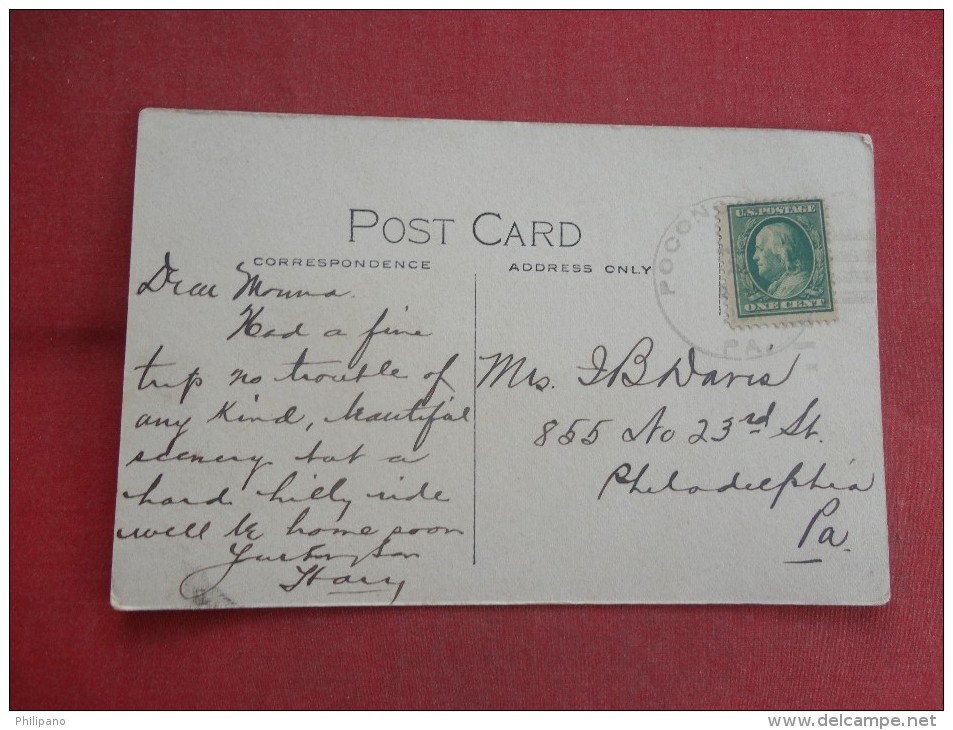 POST CARD
CORRESPONDENCE
ADDRESS ONLY
U.S. POSTAGE
ONE CENT
POCON
PA.
Dear Momma.
Had a fine
trip no trouble of
any kind, beautiful
scenery but a
hard hilly ride
will be home soon
Son
Harry
Mrs. I B Davis
855 No 23rd St.
Philadelphia
Pa.
Philipano
www.delcampe.net